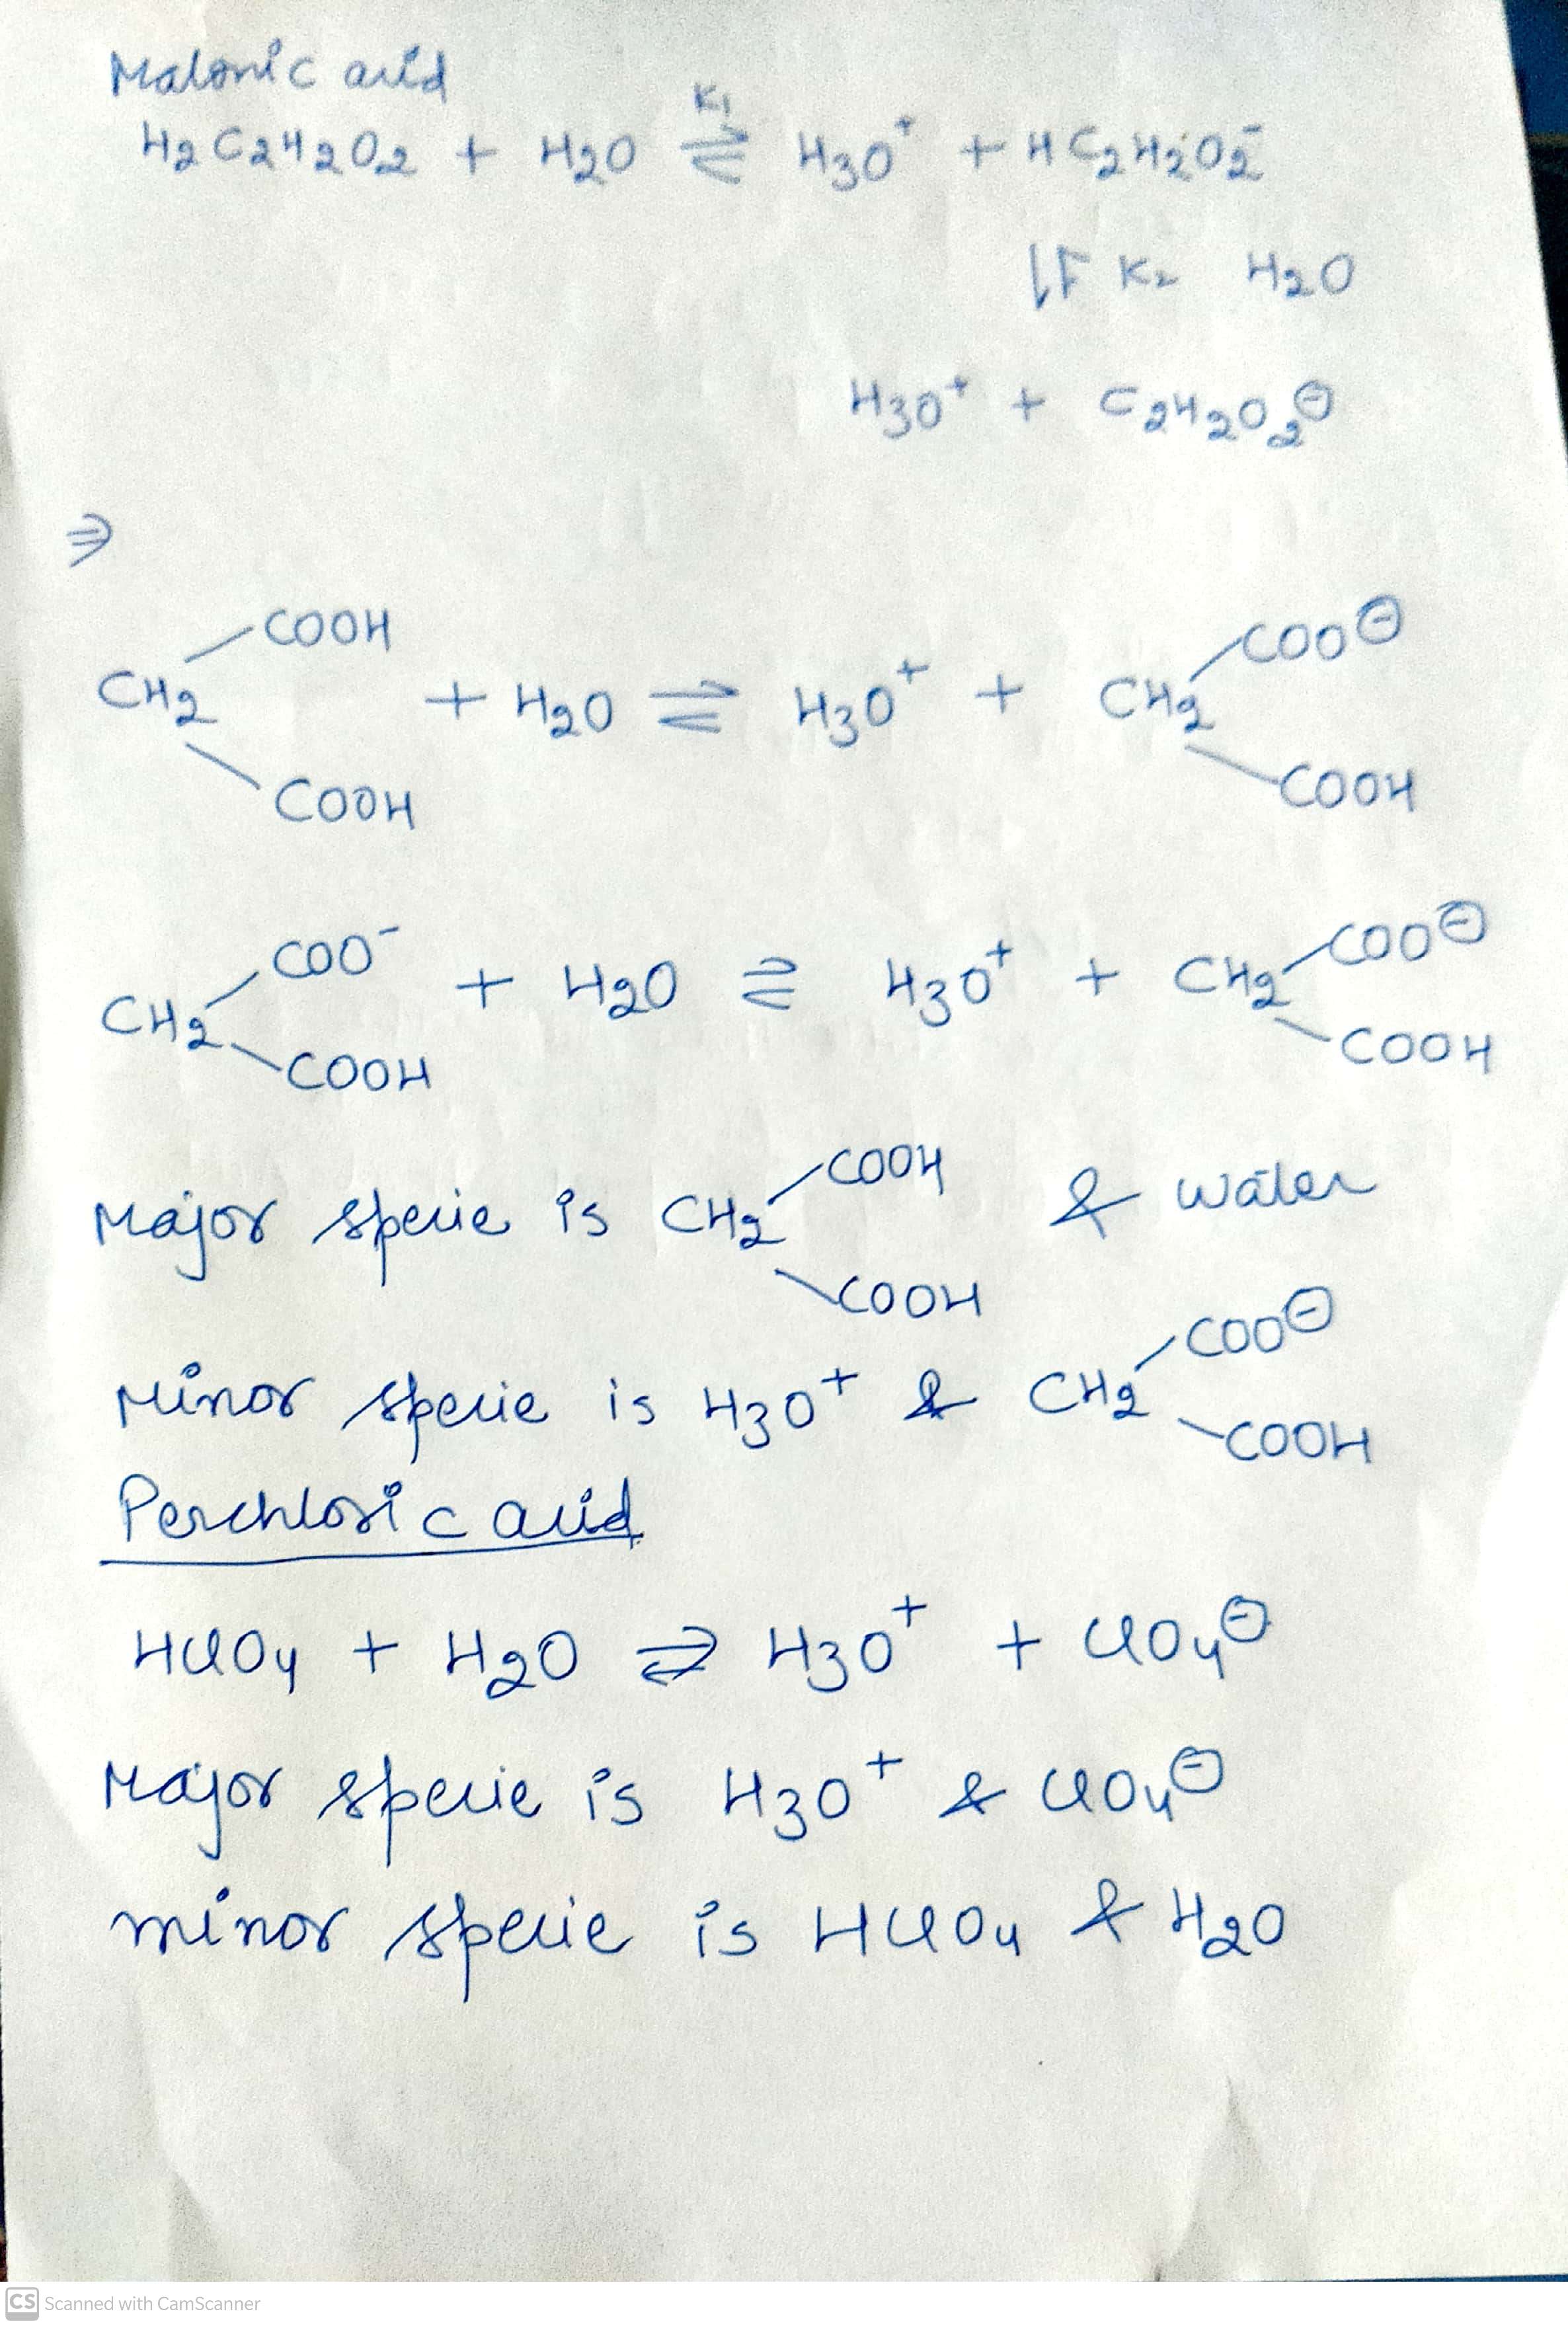 Malonic acid
K1
H2C2H2O2 + H2O ⇌ H3O+ + HC2H2O2-
⇃↾ K2 H2O
H3O+ + C2H2O2⊖
⇒
COOH COO⊖
CH2 + H2O ⇌ H3O+ + CH2
COOH COOH
COO- COO⊖
CH2 + H2O ⇌ H3O+ + CH2
COOH COOH
COOH
Major specie is CH2 & water
COOH
COO⊖
Minor specie is H3O+ & CH2
COOH
Perchloric acid
HClO4 + H2O ⇌ H3O+ + ClO4⊖
Major specie is H3O+ & ClO4⊖
minor specie is HClO4 & H2O
CS Scanned with CamScanner